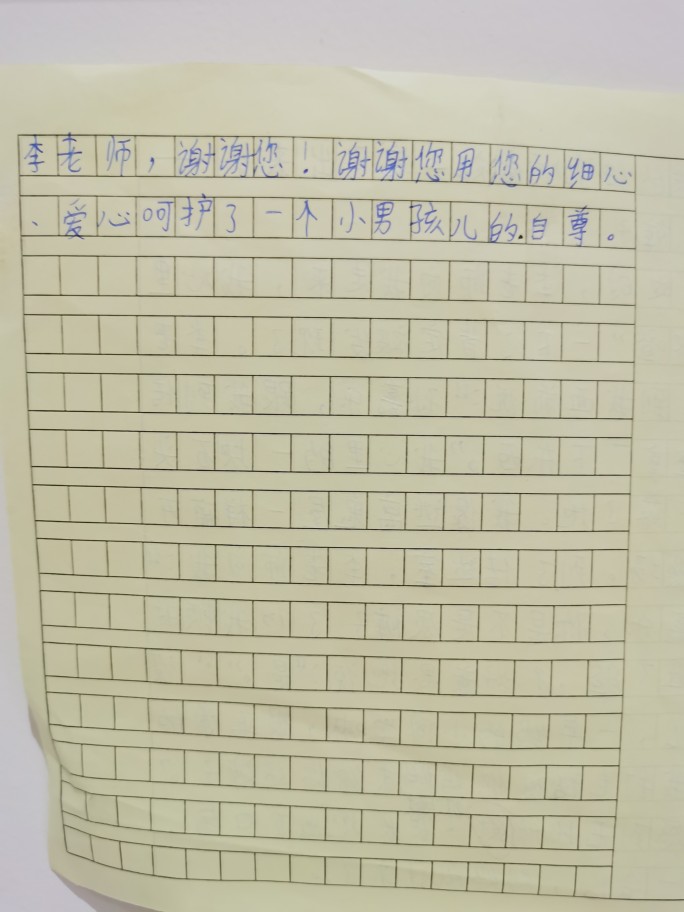 李老师，谢谢您！谢谢您用您的细心
、爱心呵护了一个小男孩儿的自尊。